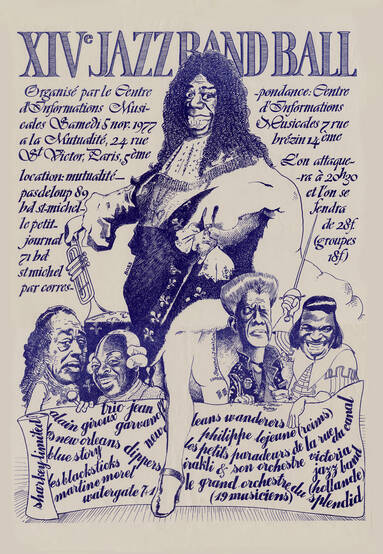 XIVe JAZZ BAND BALL
Organisé par le Centre
d'Informations Musi-
cales Samedi 5 nov. 1977
a la Mutualité, 24 rue
St Victor, Paris, 5ème
location: mutualité-
pasdeloup 89
bd st-michel-
le petit-
journal
71 bd
st michel
par corres-
-pondance: Centre
d'Informations
Musicales 7 rue
brézin 14ème
L'on attaque-
ra à 20h30
et l'on se
fendra
de 28f.
(groupes
18f)
sharkey limited
trio jean
alain giroux
les new orleans
blue story
new
clippers
les blacksticks
martine morel
watergate 7+1
jeans wanderers
philippe lejeune (reims)
les petits paradeurs de la rue du canal
irakli & son orchestre
victoria
jazz band
(hollande)
le grand orchestre du splendid
(19 musiciens)